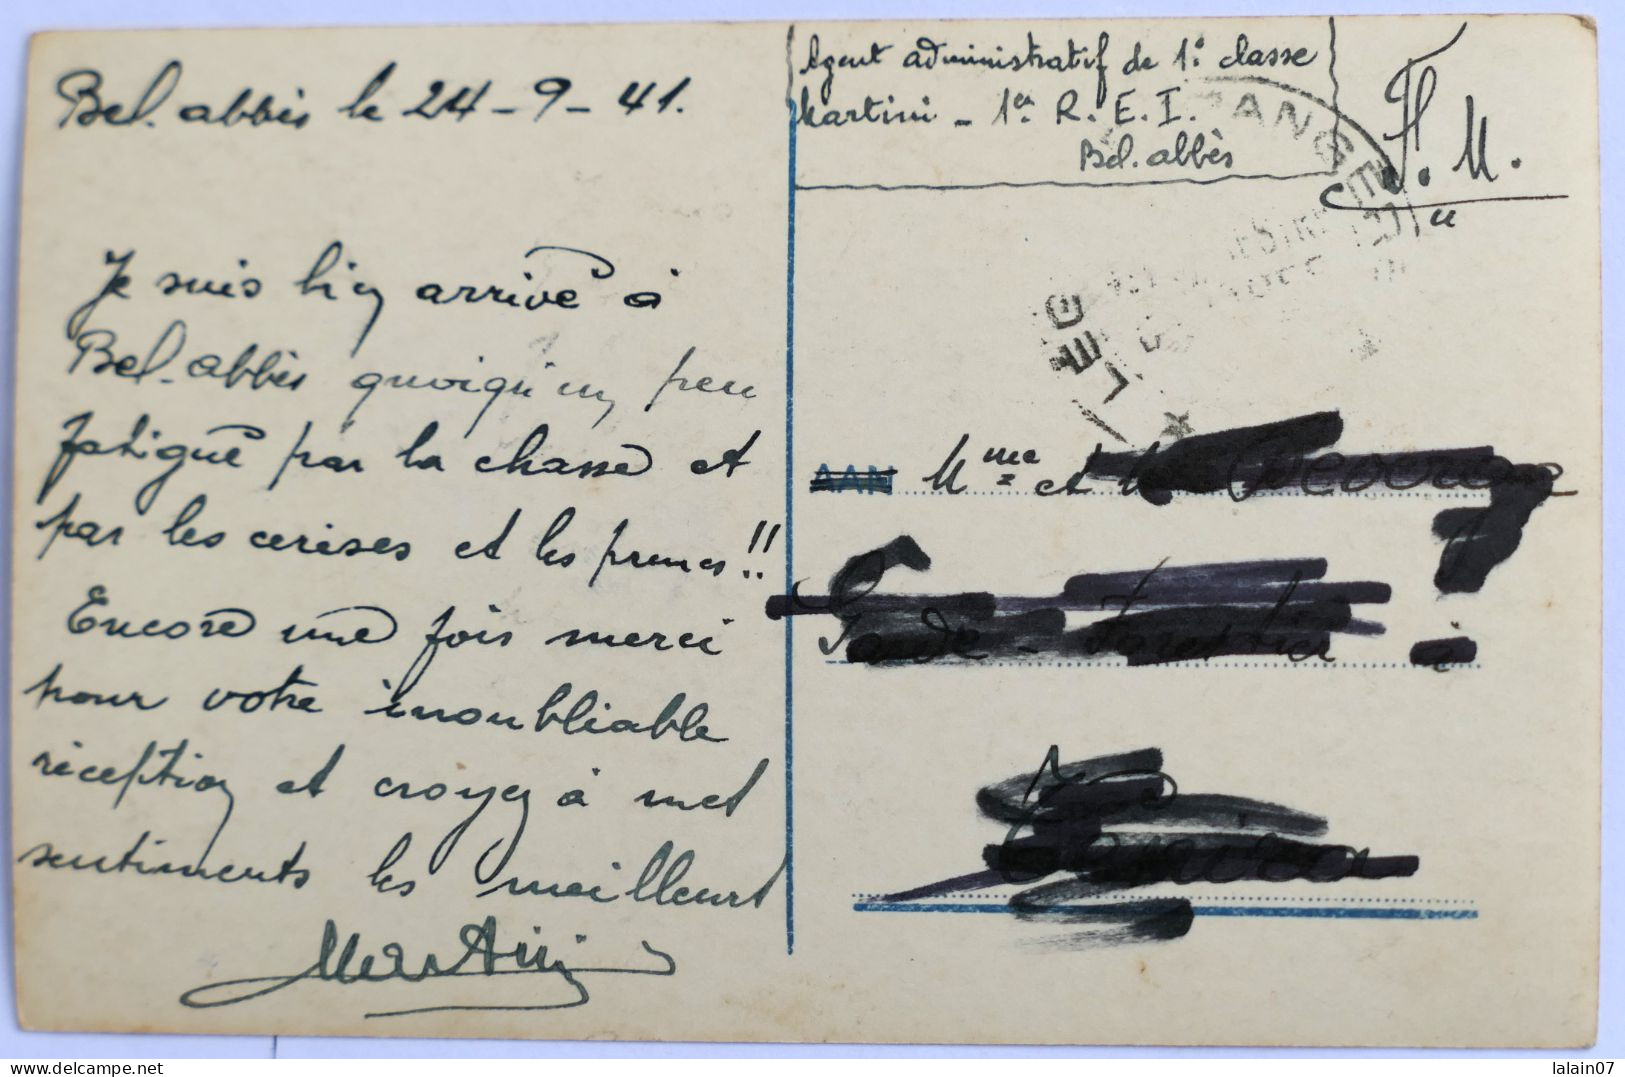 Bel. abbès le 24-9-41.
Je suis bien arrivé à
Bel. abbès quoiqu'un peu
fatigué par la chasse et
par les cerises et les prunes!!
Encore une fois merci
pour votre inoubliable
réception et croyez à mes
sentiments les meilleurs
Martini
Agent administratif de 1e classe
Martini - 1er R.E.I.
Bel. abbès
F. M.
LEG
ANGE
AAN
Mme et
Garde - Forestier à
lalain07